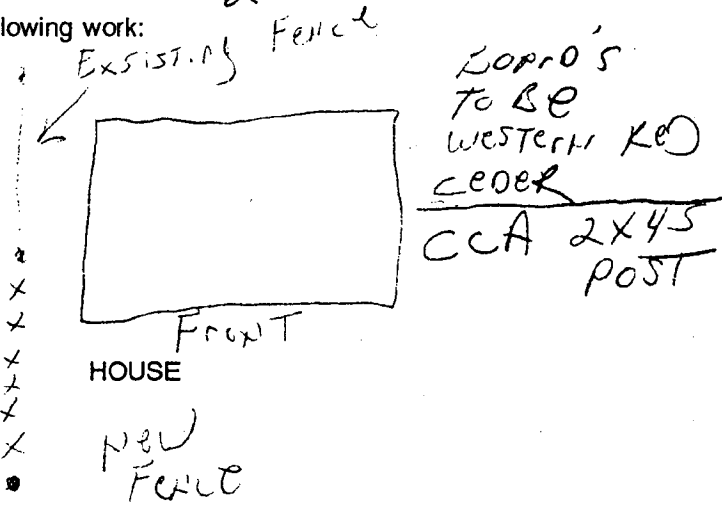 lowing work:
Exsisting Fence
To Be
western Red
ceder
CCA 2x4s
POST
Front
HOUSE
New
Fence